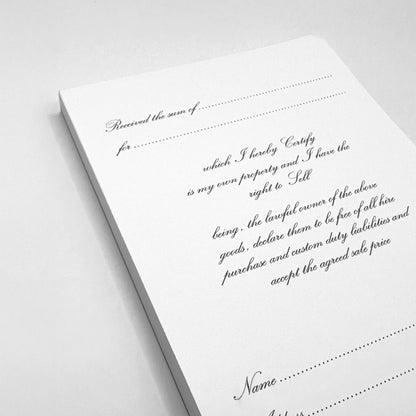 Received the sum of ........................................
for ........................................
which I hereby Certify
is my own property and I have the
right to Sell
being, the lawful owner of the above
goods, declare them to be free of all hire
purchase and custom duty liabilities and
accept the agreed sale price
Name ........................................
Address ........................................